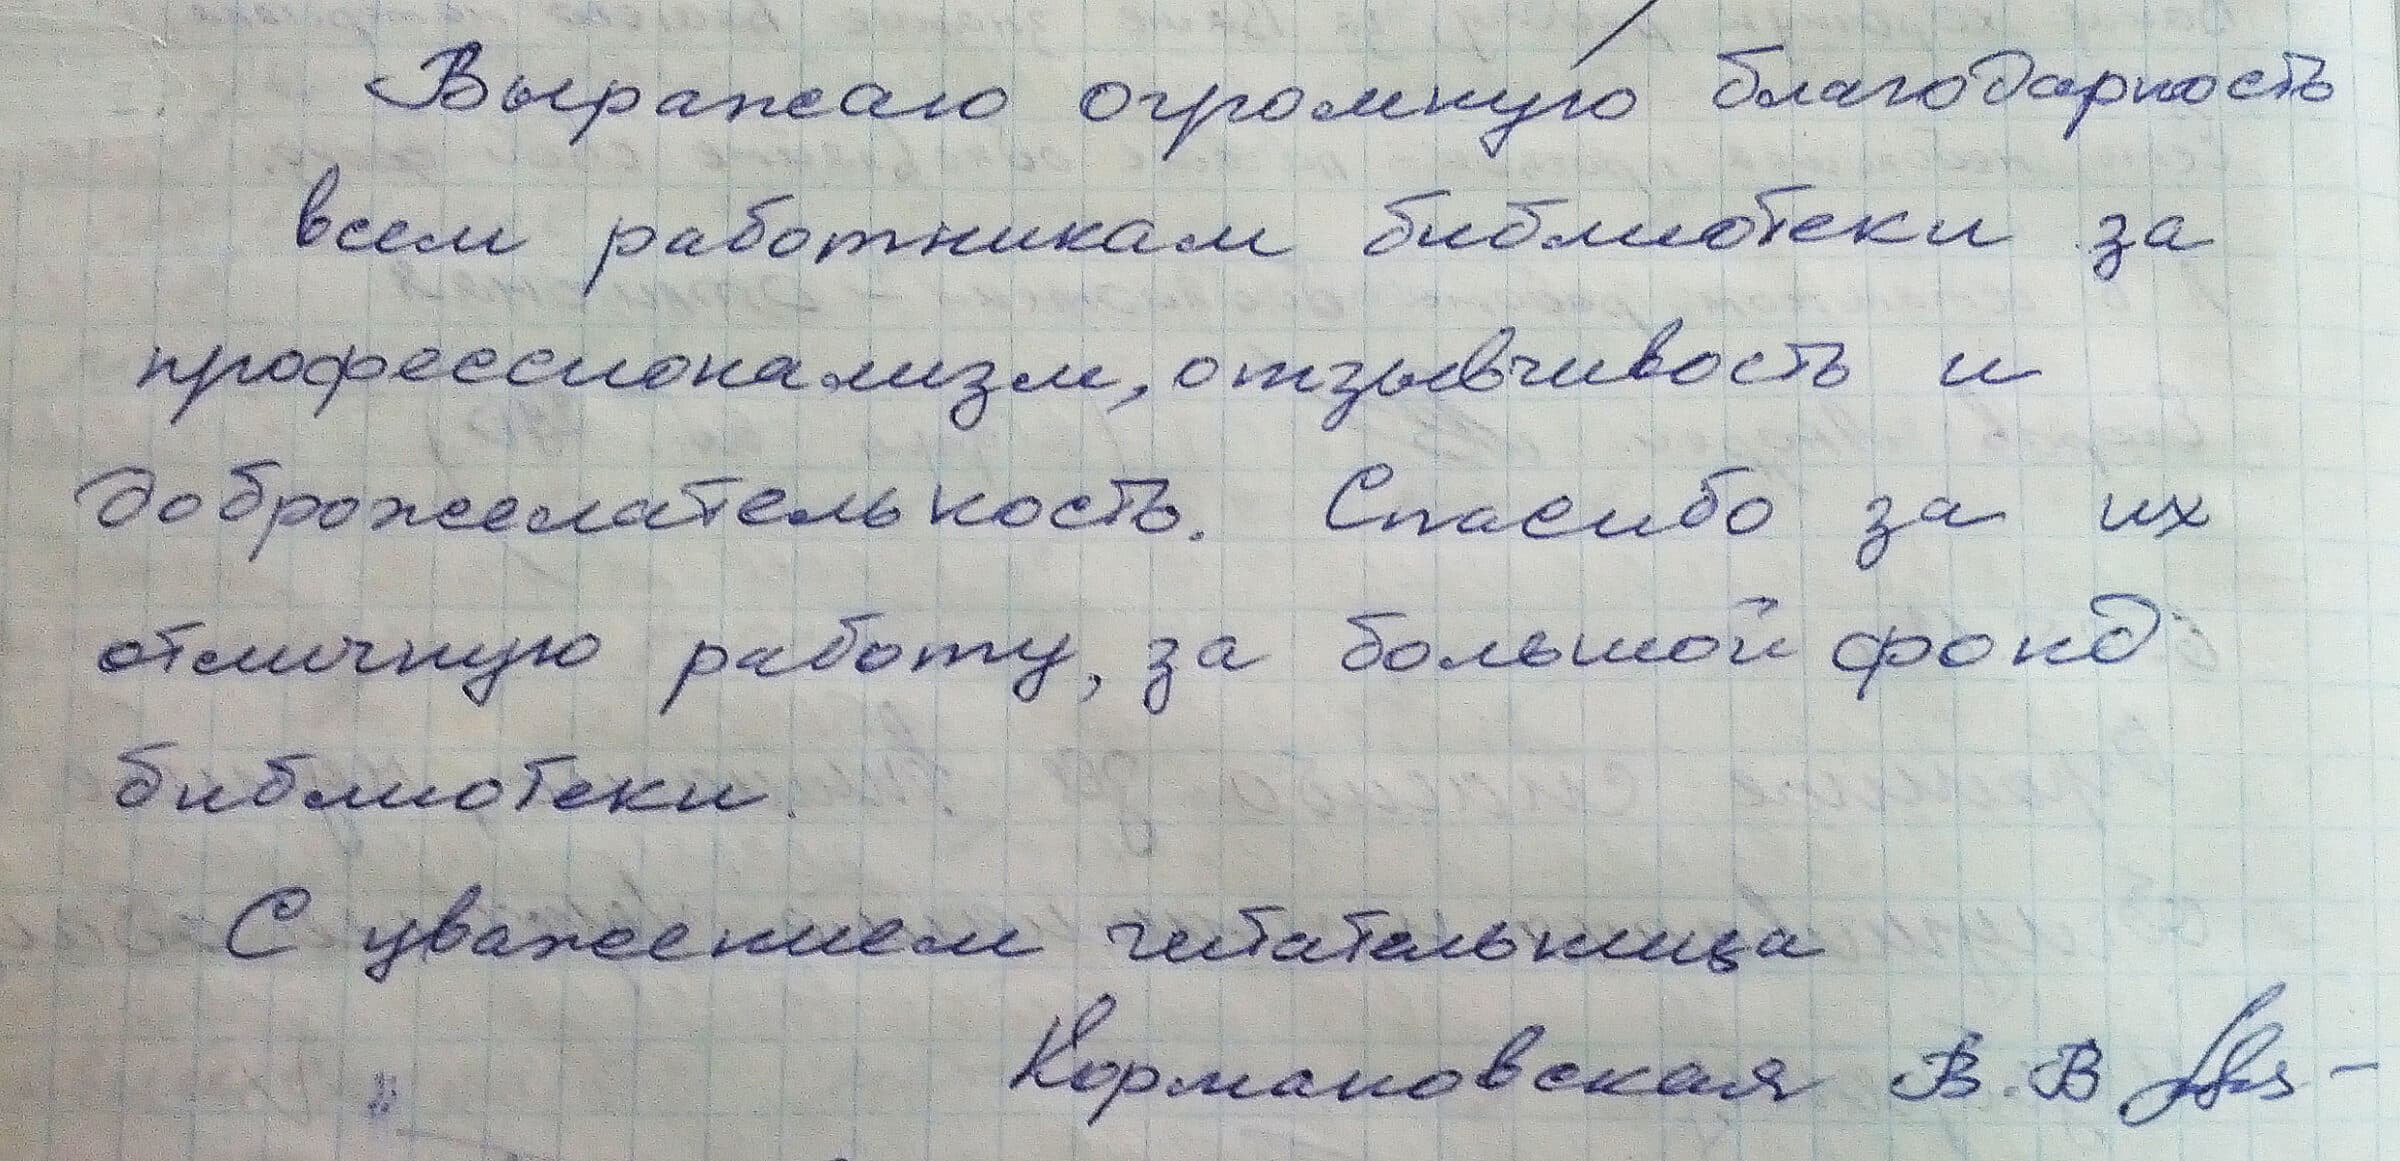 Выражаю огромную благодарность
всем работникам библиотеки за
профессионализм, отзывчивость и
доброжелательность. Спасибо за их
отличную работу, за большой фонд
библиотеки.
С уважением читательница
Кормановская В. В